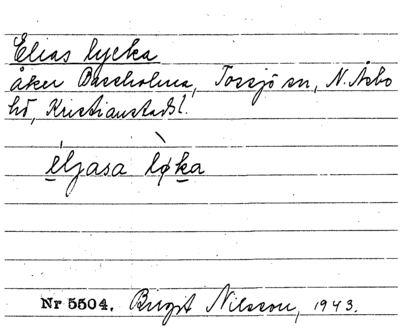 Elias lycka
åker Bassholma, Torsjö sn, N. Åsbo
hd, Kristianstads l.
éljasa lø̀ka
Nr 5504. Birgit Nilsson, 1943.